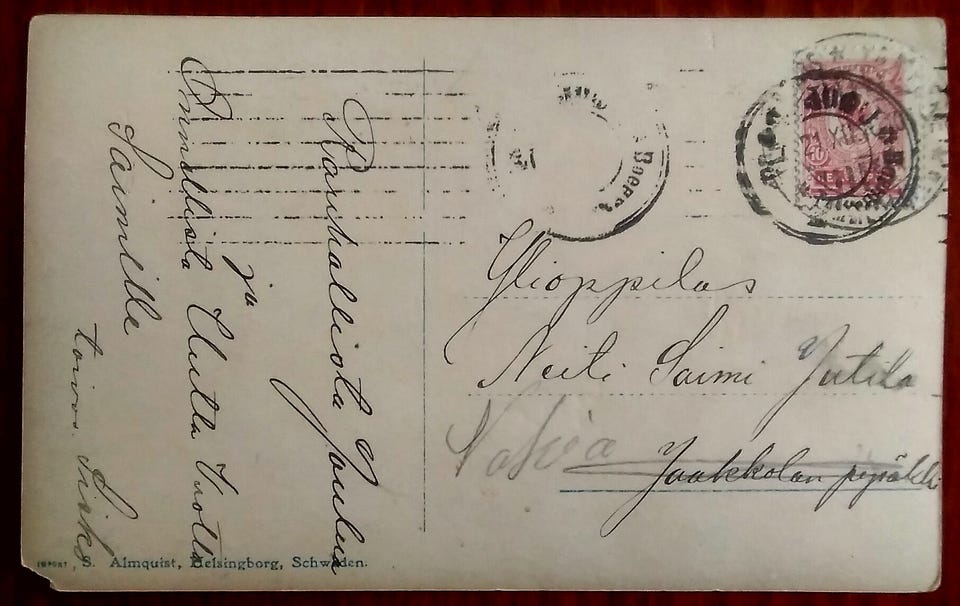 Rauhallista Joulua
ja
Onnellista Uutta Vuotta
Saimille
toivoo. Sisko
Ylioppilas
Neiti Saimi Jutila
Nokia
Jaakkolan pysäkki
IMPORT, S. Almquist, Helsingborg, Schweden.